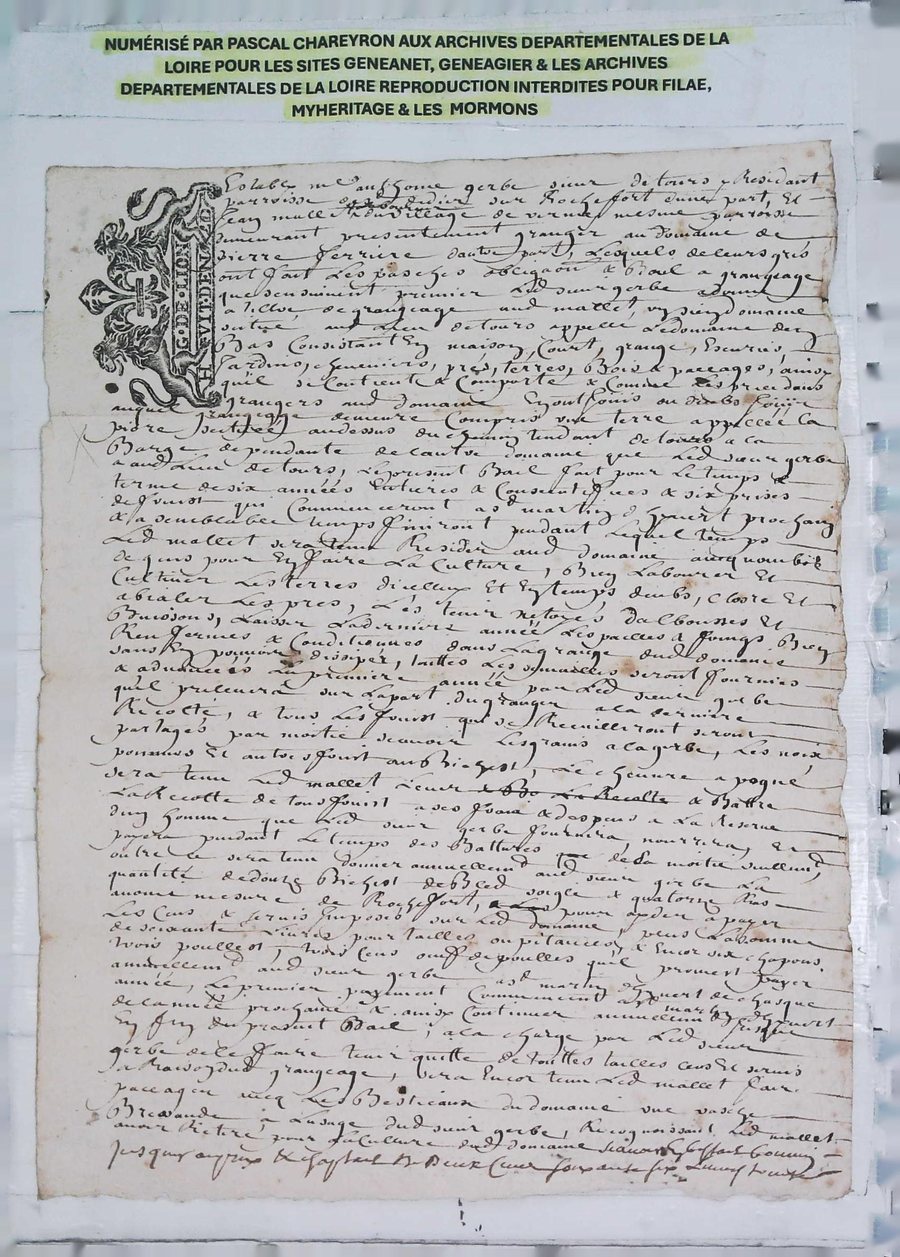 NUMÉRISÉ PAR PASCAL CHAREYRON AUX ARCHIVES DEPARTEMENTALES DE LA
LOIRE POUR LES SITES GENEANET, GENEAGIER & LES ARCHIVES
DEPARTEMENTALES DE LA LOIRE REPRODUCTION INTERDITES POUR FILAE,
MYHERITAGE & LES MORMONS
G·DE·LION
H VIT·DEN
Establi me anthoine gerbe sieur de tours, Residant
parroisse sur Rochefort dune part, Et
Jean mallet du village de mesme parroisse
demeurant presentement granger au domaine de
pierre ferriere dautre part, Lesquels de leurs gres
ont fait Les pasches obligaon & Bail a grangeage
que sensuivent premier Led sieur gerbe a donné
a tiltre de grangeage aud mallet, domaine
scitué aud Lieu de tours appellé Le domaine de
Bas Consistant En maison, Court, grange, Escuries,
Jardins, cheneviers, prés, terres, Bois & paccages, ainsy
quil se Contient & Comporte & Comme Les precedans
grangers aud domaine En ont Jouis ou deubs Jouir
auquel grangeage demeure Compris une terre appellée La
scituée audessus du chemin tendant de tours a la
Barge dependante de Lautre domaine que Led sieur gerbe
a aud Lieu de tours, Le present Bail fait pour Le temps &
terme de six années Entieres & Consecutifves & six prises
de fruist qui Commenceront a st martin dhyvert prochain
& a semblable temps finiront pendant Lequel temps
Led mallet sera tenu Resider aud domaine
de gens pour En faire La Culture, Bien Labourer Et
Cultiver Les terres dicelluy Et En temps deubs, Clore Et
Les prés, Les tenir netoyés Et
Buissons, Laisser La derniere année Les pailles & foings Bien
Renfermés & Conditionnés dans La grange dud domaine
sans En pouvoir dissiper, touttes Les semailles seront fournies
& advancées La premiere année par Led sieur gerbe
quil prelevera sur La part du granger a la derniere
Recolte, & tous Les fruist qui se Recueilliront seront
partagés par moitié scavoir Les grains a la gerbe, Les noix
pommes Et autres fruist au Bichest, Le chenvre a pogné
sera tenu Led mallet Lever & Battre
La Recolte de tous fruist a ses fraix & despens a La Reserve
dun homme que Led sieur gerbe fournira, nourrira, Et
payera pendant Le temps des Battures de la moitié seullement,
outre ce sera tenu donner annuellemt aud sieur gerbe La
quantité de douze Bichest de Bled soigle & quatorze Ras
avoine mesure de Rochefort, pour ayder a payer
Les Cens & servis Imposés sur Led domaine, plus La somme
de soixante Livres pour tailles ou pitances, & Encor six chapons,
trois poullest, trois Cens oeuff de poulles quil promest payer
annuellemt aud sieur gerbe a st martin dhyvert de chasque
année, Le premier payement Commencant a st martin dhyvert
de Lannée prochaine & ainsy Continuer annuellemt jusque
En fin du present Bail, a la charge par Led sieur
gerbe de Le faire tenir quitte de touttes tailles Cens Et servis
a Raison dud grangeage, sera Encor tenu Led mallet faire
paccager avec Les Bestiaux du domaine une vasche
Brevande, a Lusage dud sieur gerbe, Recognoissant Led mallet
avoir Retiré pour La Culture dud domaine
Jusques au prix & chaptail de Deux Cens soixante six Livres